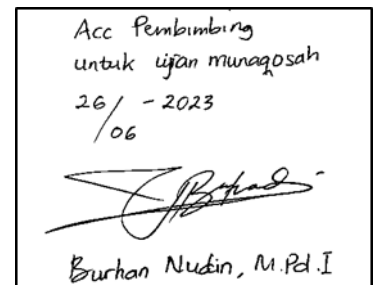 Acc Pembimbing
untuk ujian munaqosah
26/06 - 2023
Burhan Nudin, M.Pd.I